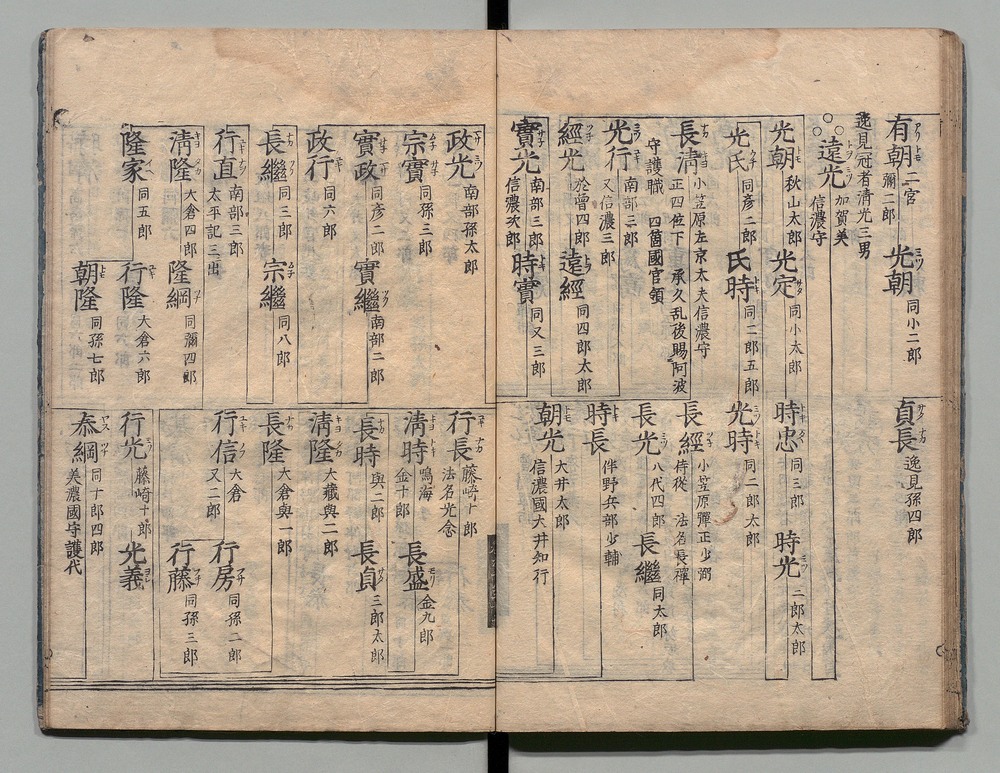 有朝 二宮 彌二郎
光朝 同小二郎
貞長 逸見孫四郎
逸見冠者清光三男
遠光 加賀美 信濃守
光朝 秋山太郎
光定 同小太郎
時忠 同三郎
時光 二郎太郎
光氏 同彦二郎
氏時 同二郎五郎
光時 同二郎太郎
長淸 小笠原左京太夫信濃守
正四位下 承久乱後賜阿波
守護職 四箇國官領
長經 小笠原彈正少弼
侍従 法名長禪
光行 南部三郎
又信濃三郎
長光 八代四郎
長繼 同太郎
經光 於曾四郎
遠經 同四郎太郎
時長 伴野兵部少輔
實光 南部三郎
信濃次郎
時實 同又三郎
朝光 大井太郎
信濃國大井知行
政光 南部孫太郎
行長 藤崎十郎
法名光念
宗實 同孫三郎
淸時 鳴海
金十郎
長盛 金九郎
實政 同彦二郎
實繼 南部二郎
長時 與二郎
長貞 三郎太郎
政行 同六郎
淸隆 大藏與二郎
長繼 同三郎
宗繼 同八郎
長隆 大倉與一郎
行直 南部三郎
太平記三出
行信 大倉
又二郎
行房 同孫二郎
淸隆 大倉四郎
隆綱 同彌四郎
行藤 同孫三郎
隆家 同五郎
行隆 大倉六郎
行光 藤崎十郎
光義
朝隆 同孫七郎
泰綱 同十郎四郎
美濃國守護代